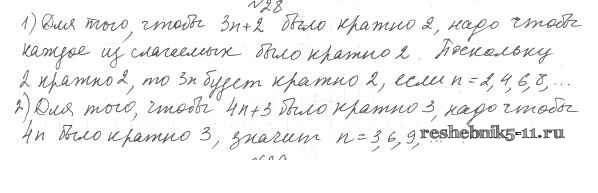 №28
1) Для того, чтобы 3n+2 было кратно 2, надо чтобы
каждое из слагаемых было кратно 2. Поскольку
2 кратно 2, то 3n будет кратно 2, если n=2,4,6,8,...
2) Для того, чтобы 4n+3 было кратно 3, надо чтобы
4n было кратно 3, значит n=3,6,9,...
reshebnik5-11.ru